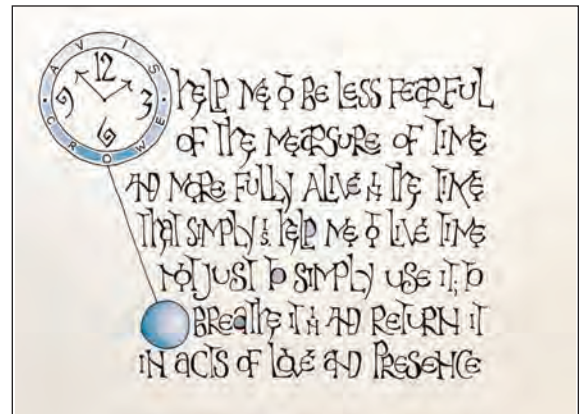 AVIS
12
9 3
6
CROWE
help me to be less fearful
of the measure of time
and more fully alive in the time
that simply is. help me to live time
not just to simply use it; to
breathe it in and return it
in acts of love and presence